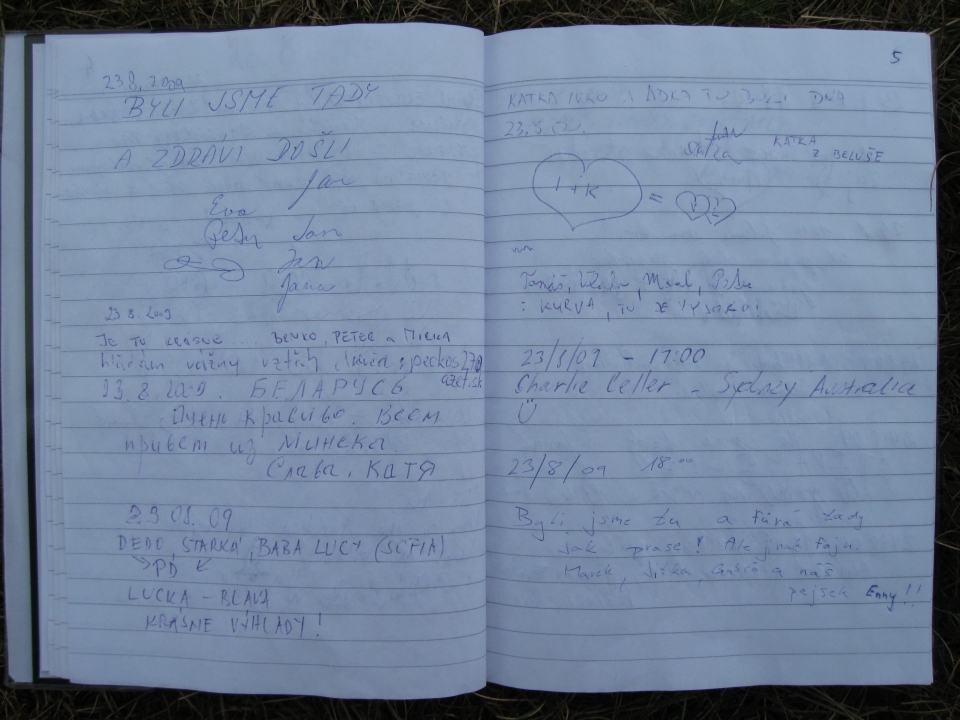 23.8.2009
BYLI JSME TADY
A ZDRÁVI DOŠLI
Jan
Eva
Petr Jan
Jan
Jana
23.8.2009
Je tu krásne PETER a MIRKA
hľadám vážny vzťah
23.8.2009. БЕЛАРУСЬ
Очень красиво. Всем
привет из Минска.
Слава, КАТЯ
23 08. 09
DEDO, STARKÁ, BABA LUCY (SOFIA)
PD
LUCKA - BLAVA
KRÁSNE VÝHĽADY!
5
KATKA IVKO A TU BOLI DŇA
KATKA
Z BELUŠE
I+K
=
Tomáš,
: KURVA, TU JE VYSOKO!
23/8/09 - 17:00
Charlie Celler - Sydney Australia
Ü
23/8/09 18:00
Byli jsme tu a fúrá tady
jak prase! Ale jinak fajn.
Marek, Jirka a náš
pejsek Enny!!